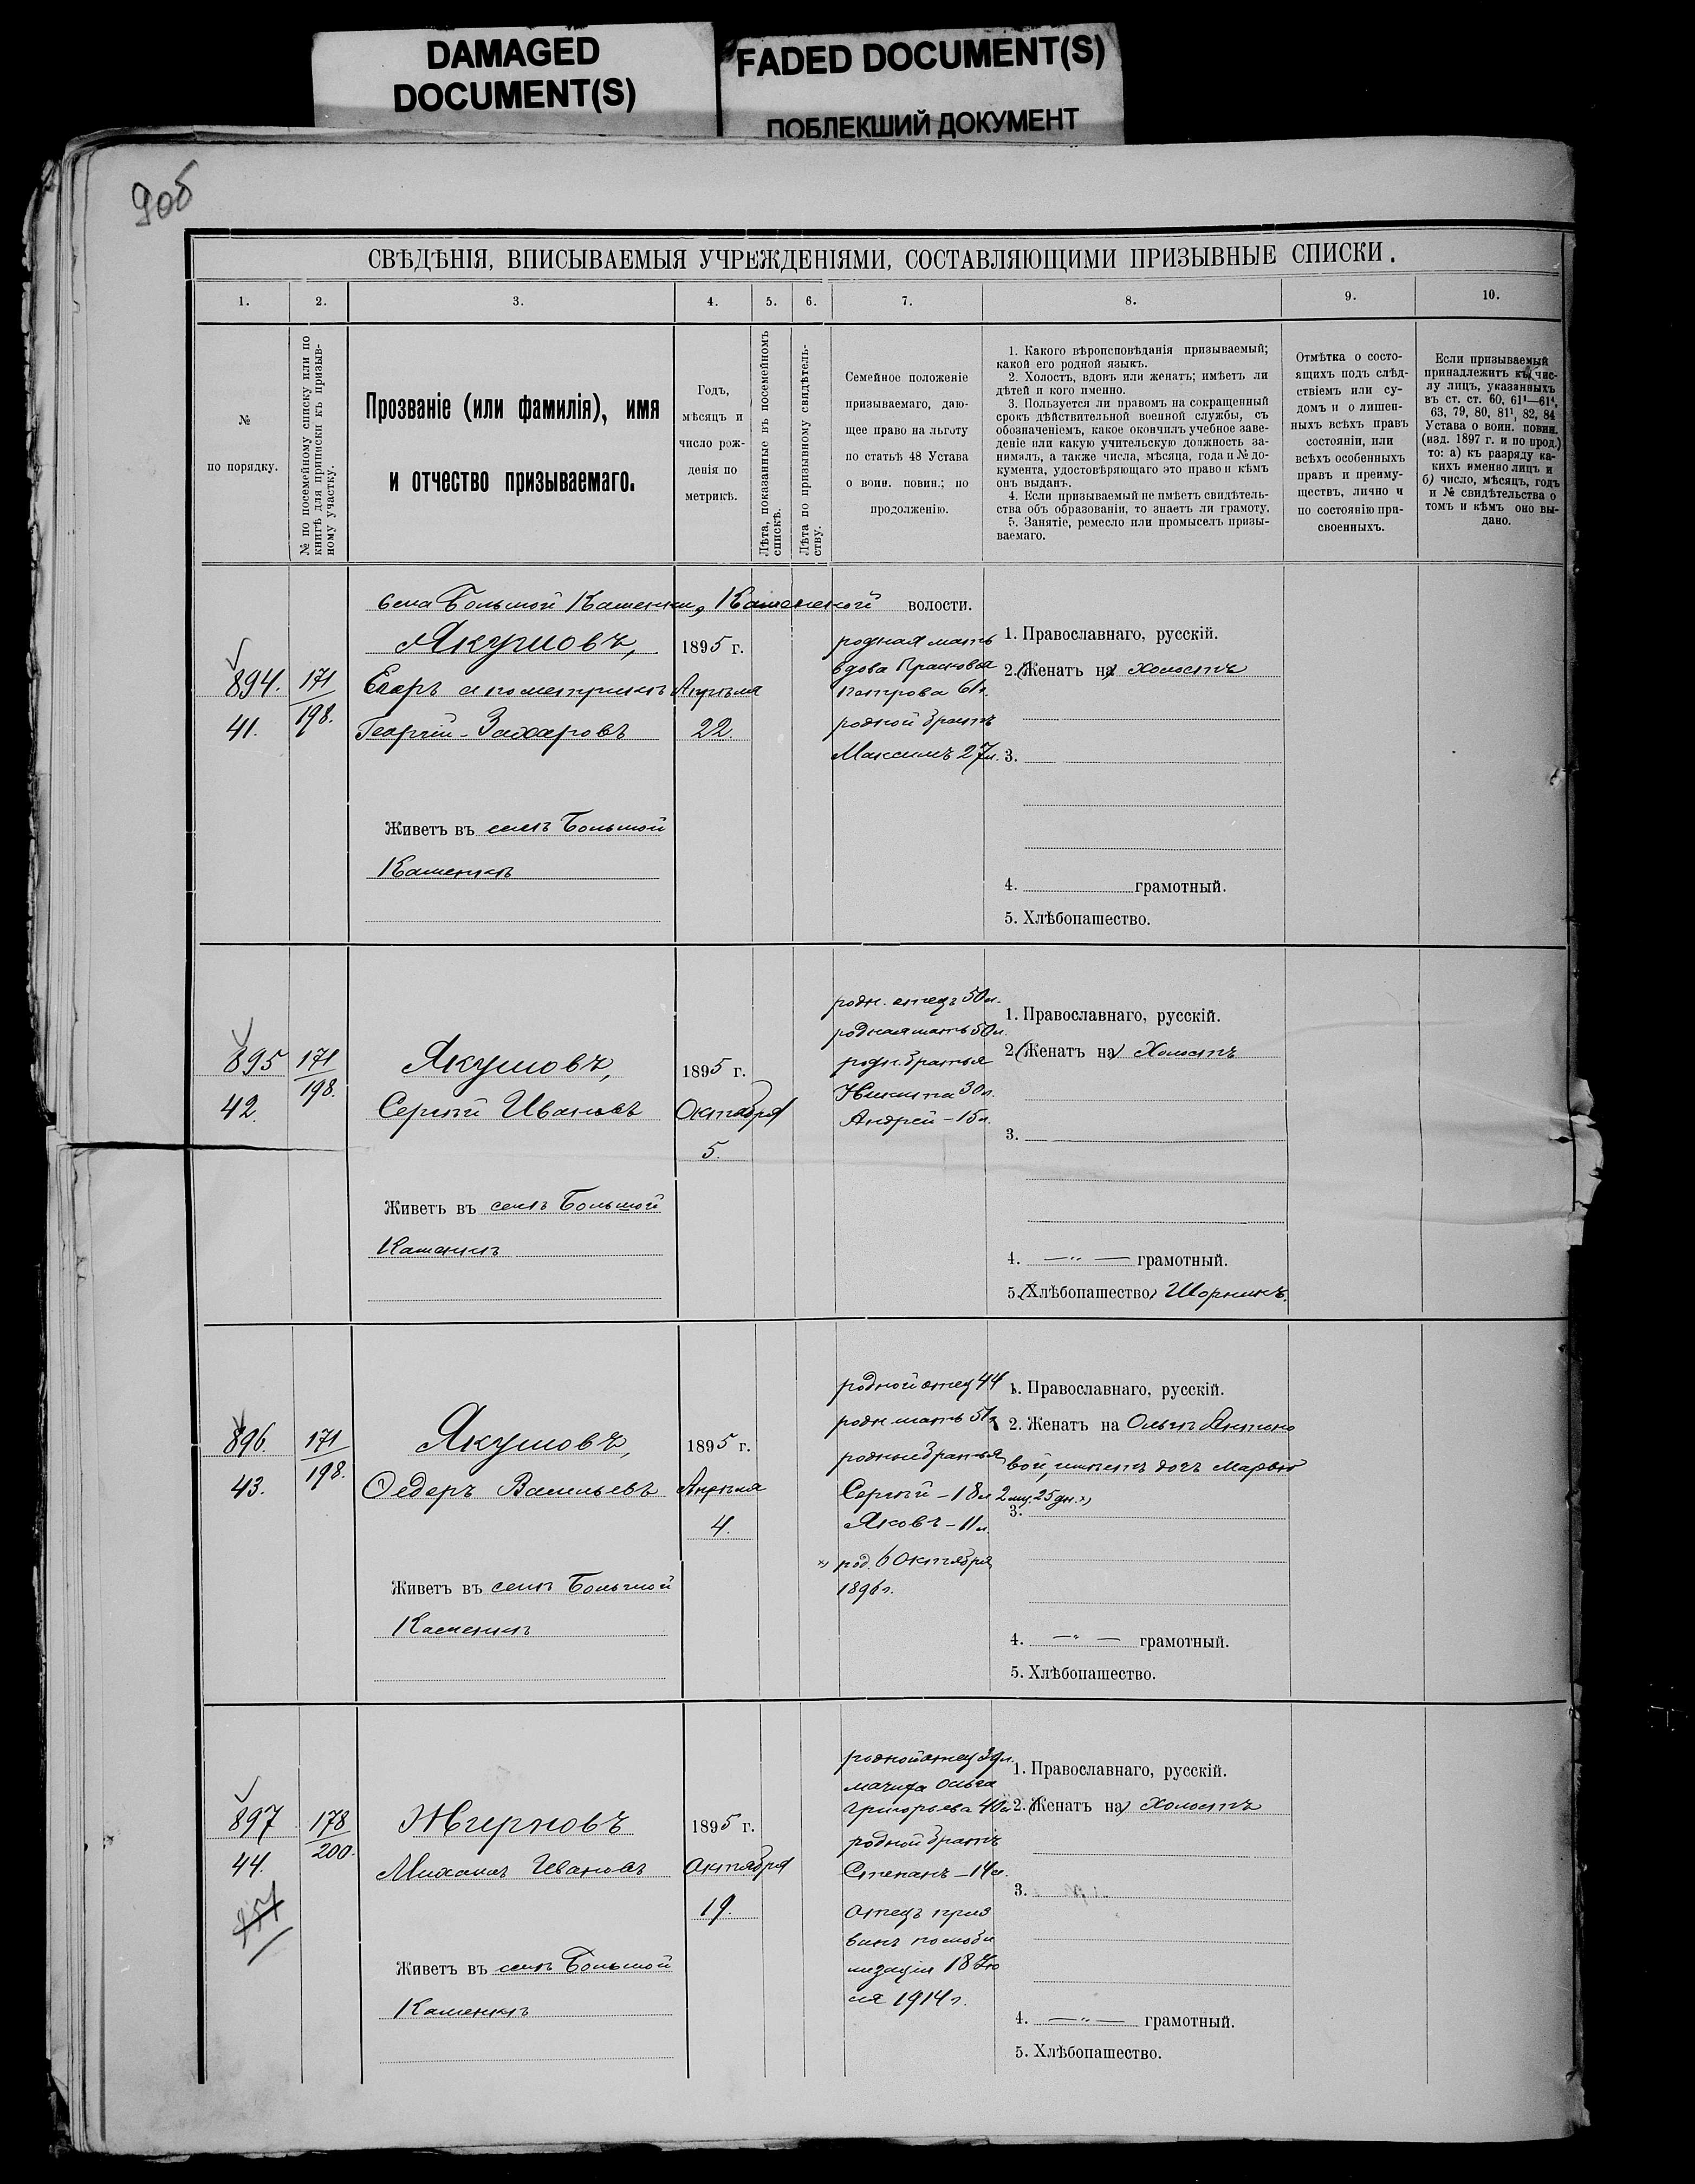 DAMAGED
DOCUMENT(S)
FADED DOCUMENT(S)
ПОБЛЕКШИЙ ДОКУМЕНТ
906
СВѢДѢНІЯ, ВПИСЫВАЕМЫЯ УЧРЕЖДЕНІЯМИ, СОСТАВЛЯЮЩИМИ ПРИЗЫВНЫЕ СПИСКИ.
1. 2. 3. 4. 5. 6. 7. 8. 9. 10.
№
по порядку.
№ по посемейному списку или по
книгѣ для приписки къ призыв-
ному участку.
Прозваніе (или фамилія), имя
и отчество призываемаго.
Годъ,
мѣсяцъ и
число рож-
денія по
метрикѣ.
Лѣта, показанные въ посемейномъ
спискѣ.
Лѣта по призывному свидѣтель-
ству.
Семейное положеніе
призываемаго, даю-
щее право на льготу
по статьѣ 48 Устава
о воин. повин.; по
продолженію.
1. Какого вѣроисповѣданія призываемый;
какой его родной языкъ.
2. Холостъ, вдовъ или женатъ; имѣетъ ли
дѣтей и кого именно.
3. Пользуется ли правомъ на сокращенный
срокъ дѣйствительной военной службы, съ
обозначеніемъ, какое окончилъ учебное заве-
деніе или какую учительскую должность за-
нималъ, а также числа, мѣсяца, года и № до-
кумента, удостовѣряющаго это право и кѣмъ
онъ выданъ.
4. Если призываемый не имѣетъ свидѣтель-
ства объ образованіи, то знаетъ ли грамоту.
5. Занятіе, ремесло или промыселъ призы-
ваемаго.
Отмѣтка о состо-
ящихъ подъ слѣд-
ствіемъ или су-
домъ и о лишен-
ныхъ всѣхъ правъ
состоянія, или
всѣхъ особенныхъ
правъ и преиму-
ществъ, лично и
по состоянію при-
своенныхъ.
Если призываемый
принадлежитъ къ чис-
лу лицъ, указанныхъ
въ ст. ст. 60, 61¹—61⁴,
63, 79, 80, 81¹, 82, 84
Устава о воин. повин.
(изд. 1897 г. и по прод.)
то: а) къ разряду ка-
кихъ именно лицъ и
б) число, мѣсяцъ, годъ
и № свидѣтельства о
томъ и кѣмъ оно вы-
дано.
села Большой Каменки, Каменской волости.
894.
41.
171
198.
Якушовъ,
Егоръ а по метрикѣ
Георгій - Захаровъ
Живетъ въ селѣ Большой
Каменкѣ
1895 г.
Апрѣля
22.
родная мать
вдова Прасковья
Петрова 61 л.
родной братъ
Максимъ 27 л.
1. Православнаго, русскій.
2. (Женатъ на) холостъ
3.
4. грамотный.
5. Хлѣбопашество.
895
42.
171
198.
Якушовъ,
Сергѣй Ивановъ
Живетъ въ селѣ Большой
Каменкѣ
1895 г.
Октября
5.
родн. отецъ 50 л.
родная мать 50 л.
родн. братья
Никита 30 л.
Андрей - 15 л.
1. Православнаго, русскій.
2. (Женатъ на) Холостъ
3.
4. — „ — грамотный.
5. (Хлѣбопашество) Шорникъ.
896.
43.
171
198.
Якушовъ,
Ѳедоръ Васильевъ
Живетъ въ селѣ Большой
Каменкѣ
1895 г.
Апрѣля
4.
родной отец 44
родн мать 51 л
родные братья
Сергѣй - 18 л
Яковъ - 11 л.
×) род. 6 Октября
1896 г.
1. Православнаго, русскій.
2. Женатъ на Ольгѣ Антоно
вой, имѣетъ дочь Марью
2 мц. 25 дн. ×)
3.
4. — „ — грамотный.
5. Хлѣбопашество.
897
44.
178
200.
Михаилъ Ивановъ
Живетъ въ селѣ Большой
Каменкѣ
1895 г.
Октября
19.
родной отец 39 л.
мачиха Ольга
Григорьева 40 л
родной братъ
Степанъ - 14 л.
Отецъ приз
ванъ по моби
лизаціи 18 Ію
ля 1914 г.
1. Православнаго, русскій.
2. (Женатъ на) холостъ
3.
4. — „ — грамотный.
5. Хлѣбопашество.